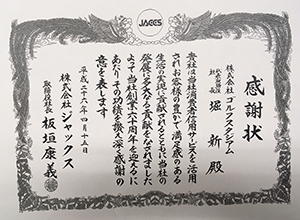 JACCS
感謝状
株式会社 ゴルフスタジアム
代表取締役社長
堀 新 殿
貴社は当社消費者信用サービスを活用
されお客様の豊かで満足感のある
生活の実現に貢献されるとともに当社の
発展に多大なる貢献をなされました
よって当社創業六十周年を迎えるに
あたりその功績を讃え深く感謝の
意を表します
平成二十六年四月十五日
株式会社 ジャックス
取締役社長 板垣康義